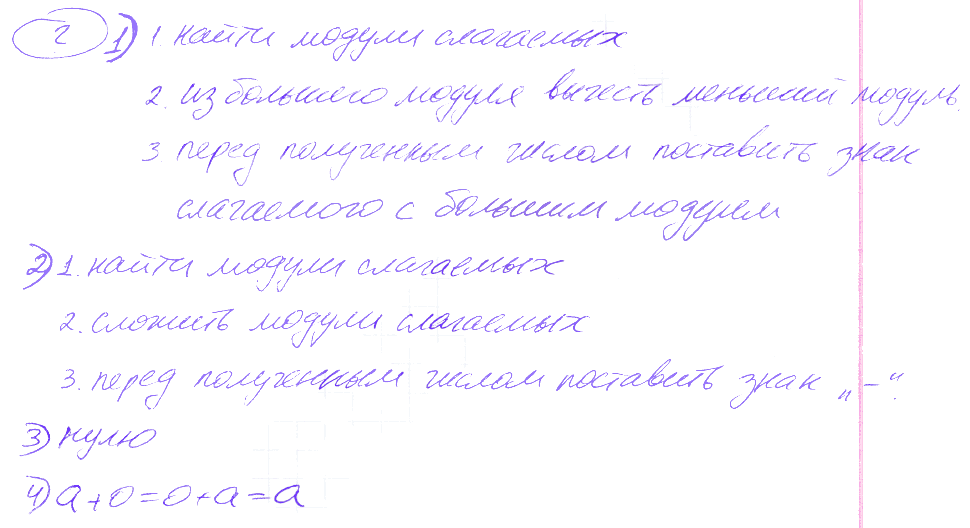 2 1) 1. найти модули слагаемых
2. из большего модуля вычесть меньший модуль.
3 перед полученным числом поставить знак
слагаемого с большим модулем
2) 1. найти модули слагаемых
2. сложить модули слагаемых
3. перед полученным числом поставить знак „−“.
3) нулю
4) a+0=0+a=a